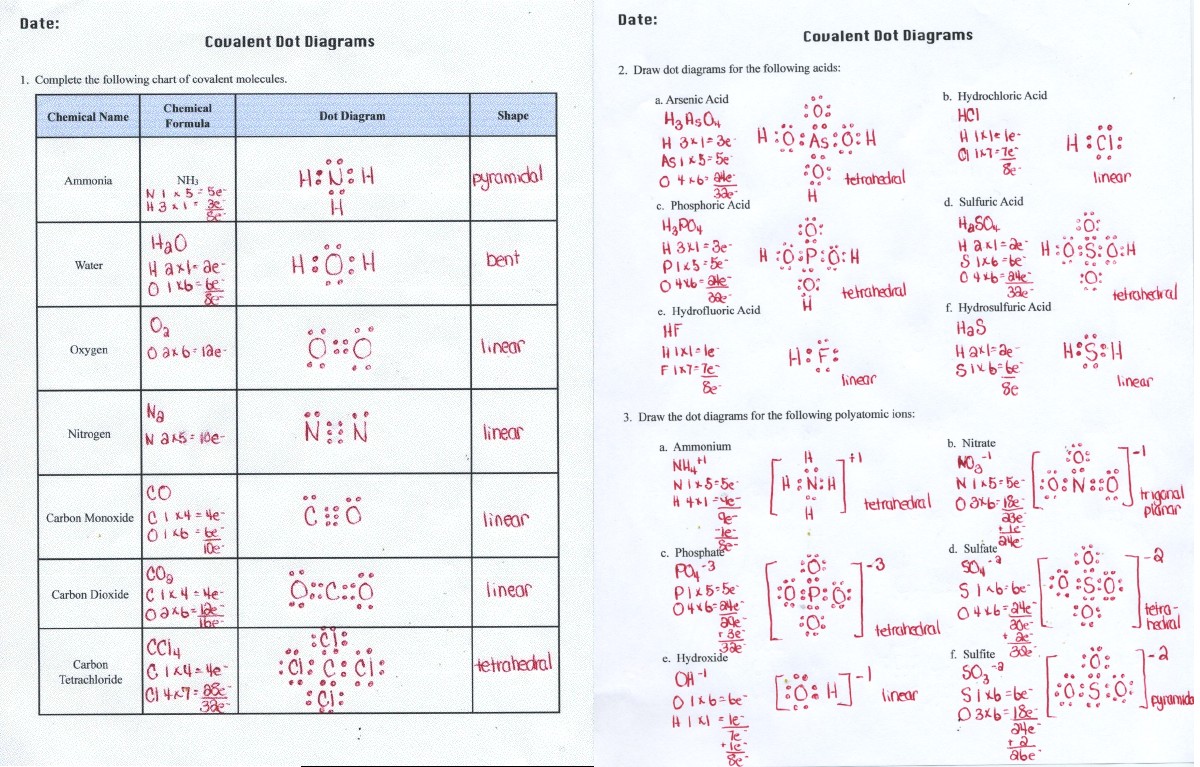 Date:
Covalent Dot Diagrams
1. Complete the following chart of covalent molecules.
Chemical Name
Chemical Formula
Dot Diagram
Shape
Ammonia
NH3
N 1 x 5 = 5e-
H 3 x 1 = 3e-
8e-
H N H
H
pyramidal
Water
H2O
H 2x1= 2e-
O 1x6= 6e-
8e-
H O H
bent
Oxygen
O2
O 2x6= 12e-
O O
linear
Nitrogen
N2
N 2x5= 10e-
N N
linear
Carbon Monoxide
CO
C 1 x4= 4e-
O 1x6= 6e-
10e-
C O
linear
Carbon Dioxide
CO2
C 1x4= 4e-
O 2x6= 12e-
16e-
O C O
linear
Carbon Tetrachloride
CCl4
C 1x4= 4e-
Cl 4x7= 28e-
32e-
Cl
Cl C Cl
Cl
tetrahedral
Date:
Covalent Dot Diagrams
2. Draw dot diagrams for the following acids:
a. Arsenic Acid
H3AsO4
H 3x1= 3e-
As 1x5= 5e-
O 4x6= 24e-
32e-
O
H O As O H
O
H
tetrahedral
b. Hydrochloric Acid
HCl
H 1x1= 1e-
Cl 1x7= 7e-
8e-
H Cl
linear
c. Phosphoric Acid
H3PO4
H 3x1= 3e-
P 1x5= 5e-
O 4x6= 24e-
32e-
O
H O P O H
O
H
tetrahedral
d. Sulfuric Acid
H2SO4
H 2x1= 2e-
S 1x6= 6e-
O 4x6= 24e-
32e-
O
H O S O H
O
tetrahedral
e. Hydrofluoric Acid
HF
H 1x1= 1e-
F 1x7= 7e-
8e-
H F
linear
f. Hydrosulfuric Acid
H2S
H 2x1= 2e-
S 1x6= 6e-
8e
H S H
linear
3. Draw the dot diagrams for the following polyatomic ions:
a. Ammonium
NH4+1
N 1x5=5e-
H 4x1= 4e-
9e-
-1e-
8e-
H
H N H
H
+1
tetrahedral
b. Nitrate
NO3-1
N 1x5= 5e-
O 3x6= 18e-
23e-
+ 1e-
24e-
O
O N O
-1
trigonal planar
c. Phosphate
PO4-3
P 1x5=5e-
O 4x6= 24e-
29e-
+ 3e-
32e-
O
O P O
O
-3
tetrahedral
d. Sulfate
SO4-2
S 1x6= 6e-
O 4x6= 24e-
30e-
+ 2e-
32e-
O
O S O
O
-2
tetra-
hedral
e. Hydroxide
OH-1
O 1x6=6e-
H 1x1 = 1e-
7e-
+ 1e-
8e-
O H
-1
linear
f. Sulfite
SO3-2
S 1x6=6e-
O 3x6= 18e-
24e-
+ 2
26e-
O
O S O
-2
pyramida